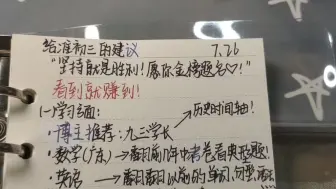 给准初三的建议 7.26
"坚持就是胜利!愿你金榜题名♡!"
看到就赚到!
(一)学习方面:
历史时间轴!
·博主推荐:九三学长
·数学(广东)→翻翻前几年中考卷看典型题!
·英语→翻翻以前的单词,